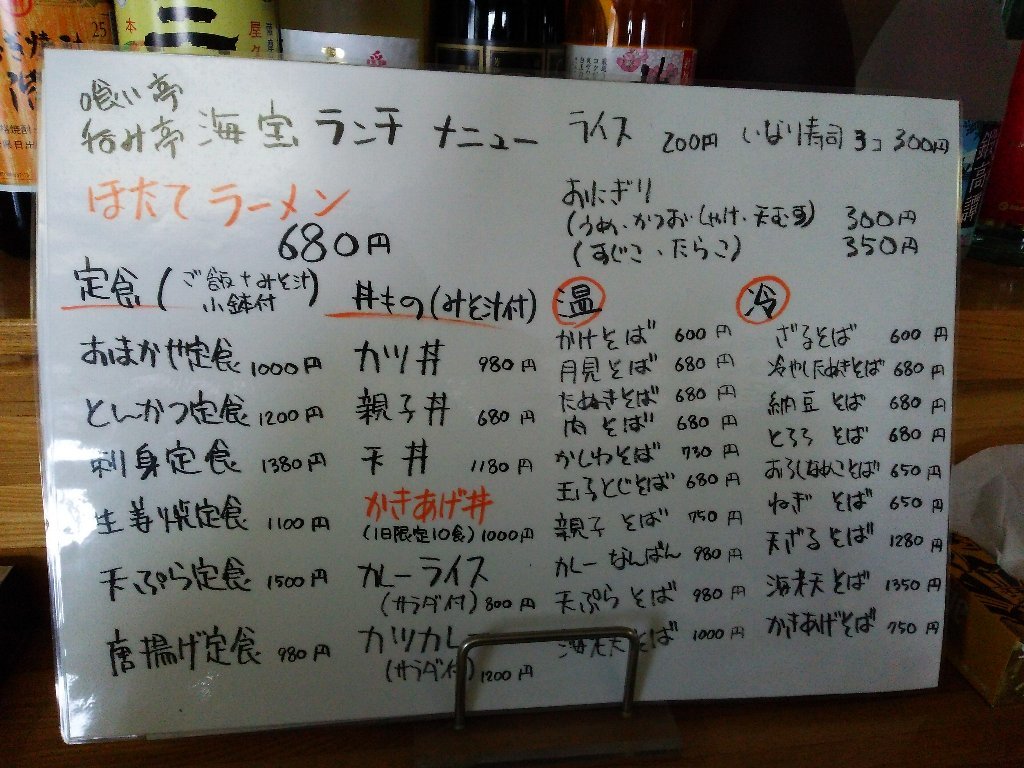 喰い亭
呑み亭 海宝 ランチ メニュー
ほたて ラーメン
680円
ライス 200円 いなり寿司 3コ 300円
おにぎり
(うめ・かつお・しゃけ・天むす) 300円
(すじこ・たらこ) 350円
定食 (ご飯+みそ汁
小鉢付)
おまかせ定食 1000円
とんかつ定食 1200円
刺身定食 1380円
生姜焼定食 1100円
天ぷら定食 1500円
唐揚げ定食 980円
丼もの (みそ汁付)
カツ丼 980円
親子丼 680円
天丼 1180円
かきあげ丼
(1日限定10食) 1000円
カレーライス
(サラダ付) 800円
カツカレー
(サラダ付) 1200円
温
かけそば 600円
月見そば 680円
たぬきそば 680円
肉そば 680円
かしわそば 730円
玉子とじそば 680円
親子そば 750円
カレーなんばん 980円
天ぷらそば 980円
海老天そば 1000円
冷
ざるそば 600円
冷やしたぬきそば 680円
納豆そば 680円
とろろそば 680円
おろしなめこそば 650円
ねぎそば 650円
天ざるそば 1280円
海老天そば 1350円
かきあげそば 750円
25